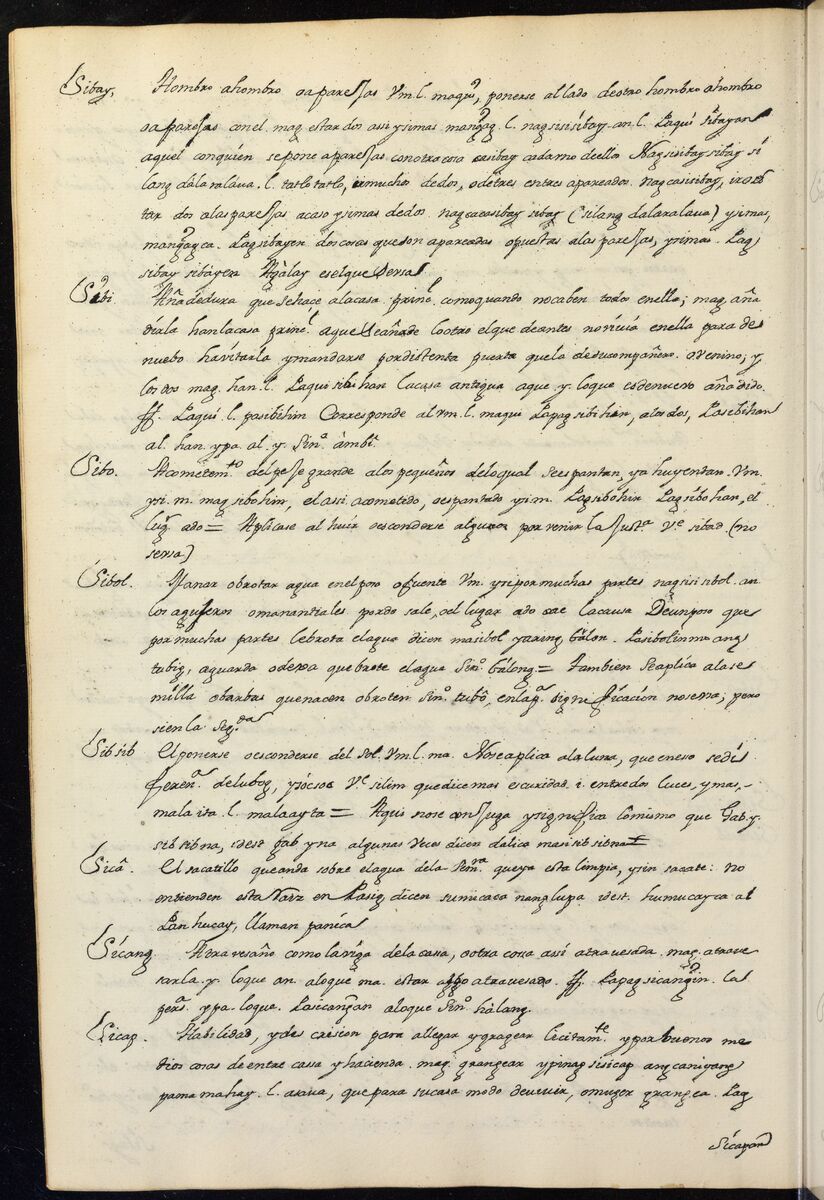 Sibay, Hombro ahombro oapareJas Vm. l. maqui, ponerse allado deotro hombro ahombro
oapareJas con el. mag. estar dos assi ysimas mangag. l. nagsisisibay. an. l. Paquisibayan
aquel conquien sepone apareJas conotra cosa osibay adarno deella Nagsisibay sibay si
lang dalaralaua. l. tatlo tatlo, ir muchos dedos, odetres entres apareados. nagcasisibay,
tar dos alaspareJas acaso ysimas dedos nagcacasibay sibay (silang dalaralaua) ysimas,
mangagca. Pagsibayen dos cosas queson apareadas opuestas alas pareJas, ysimas. Pag
sibay sibayera Agalay eselque
Sibi. Añadedura que sehace alacasa prin.l comoquando nocaben todos enella; mag. aña
dirla han lacasa prin.l aque le otro elque deantes noviuia enella para de
nuebo havitarla ymandarse pordistenta puerta quela desucompañero. ovenino; y
los dos mag. han. l. Paquisibihan lacasa antigua aque. y. loque esdenuevo añadido.
ff. Paqui. l. pasibihim Corresponde al Vm. l. maqui Papagsibihin, alos dos, Pasibihan
al. han. ypa. al. y. Sin.o ambi.
Sibo. Acometem.to delpeJe grande alos pequeños deloqual seespantan, ya huyendan. Vm.
ysi. m. magsibohim, el assi acometedo, oespantado ysi m. Pagsibohin Pagsibohan, el
lug. ado = Aplicase al huir oesconderse alguno por venir la Just.a V.e sibad. (no
sersa)
Sibol. Manar obrotar agua enelposo ofuente Vm. ysipormuchas partes nagsisisibol. an.
los agujeros omanantiales pordo sale, oel lugar ado oae lacausa Deunposo que
pormuchas partes lebrota elagua dicen masibol yaring balon. Pasibolinmo ang
tubig, aguarda odexa quebrote elagua Sin.o balong = tambien seaplica alase
milla obarbas quenacen obroten Sin.o tubò, enlap.a significación nosersa; pero
sienla Seg.da
Sibsib El ponerse oesconderse del Sol. Vm. l. ma. Noseaplica alaluna, que eneso sedis
feren.a delubog, ysócsoc V.e silim quedicemas escuridad. i. entredos luces, ymas, -
mala ita. l. malaayta = Aquis nose conJuga ysignifica lomismo que Gab. y.
sibsibna, idest gab yna algunas veces dicen dalica masisibsibna
Sicà. El sacatillo queanda sobre elagua dela Sem.ra queya esta limpia, ysin sacate: no
entienden esta Varz en Pasig, dicen sumicaca nanglupa idest. humucayca al
Panhucay, llaman panica
Sicang. Atravesaño como laviga delacasa, ootra cosa assi atravesada. mag. atrave
sarla. y. loque an. aloque ma. estar atravesado. ff. Papagsicangin. la
pers.a ypa. loqua. Pasicangan aloque Sin.o hàlang.
Sicap. Habilidad, ydes cresion para allegar ygragear licitam.te yporbuenos me
dios cosas de entre cassa y hacienda. mag. grangear ypinagsisicap angcaniyang
yamamahay. l. asaua, que para sucasa modo devivir, omuger grangea. Pag
Sicapan